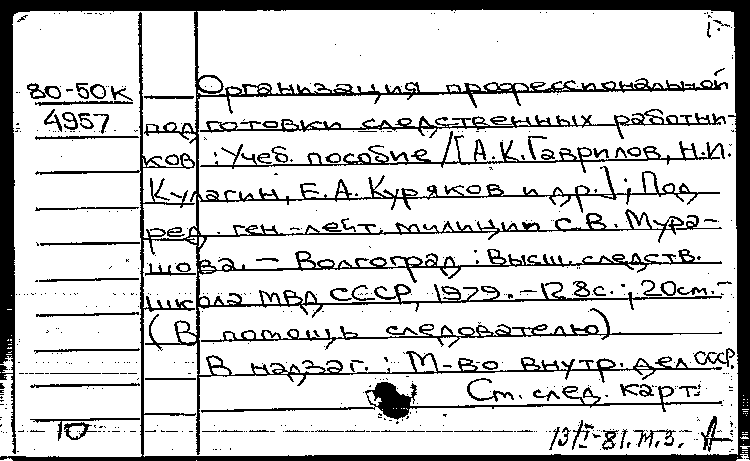 80-50К Организация профессиональной
4957 подготовки следственных работни-
ков : Учеб. пособие /[А.К.Гаврилов, Н.И.
Кулагин, Е.А. Куряков и др.]; Под
ред. ген.-лейт. милиции С.В. Мура-
шова. — Волгоград : Высш. следств.
школа МВД СССР, 1979. - 128с.; 20см.-
(В помощь следователю)
В надзаг. : М-во внутр. дел СССР.
См. след. карт.
10 13/I-81. м.з.